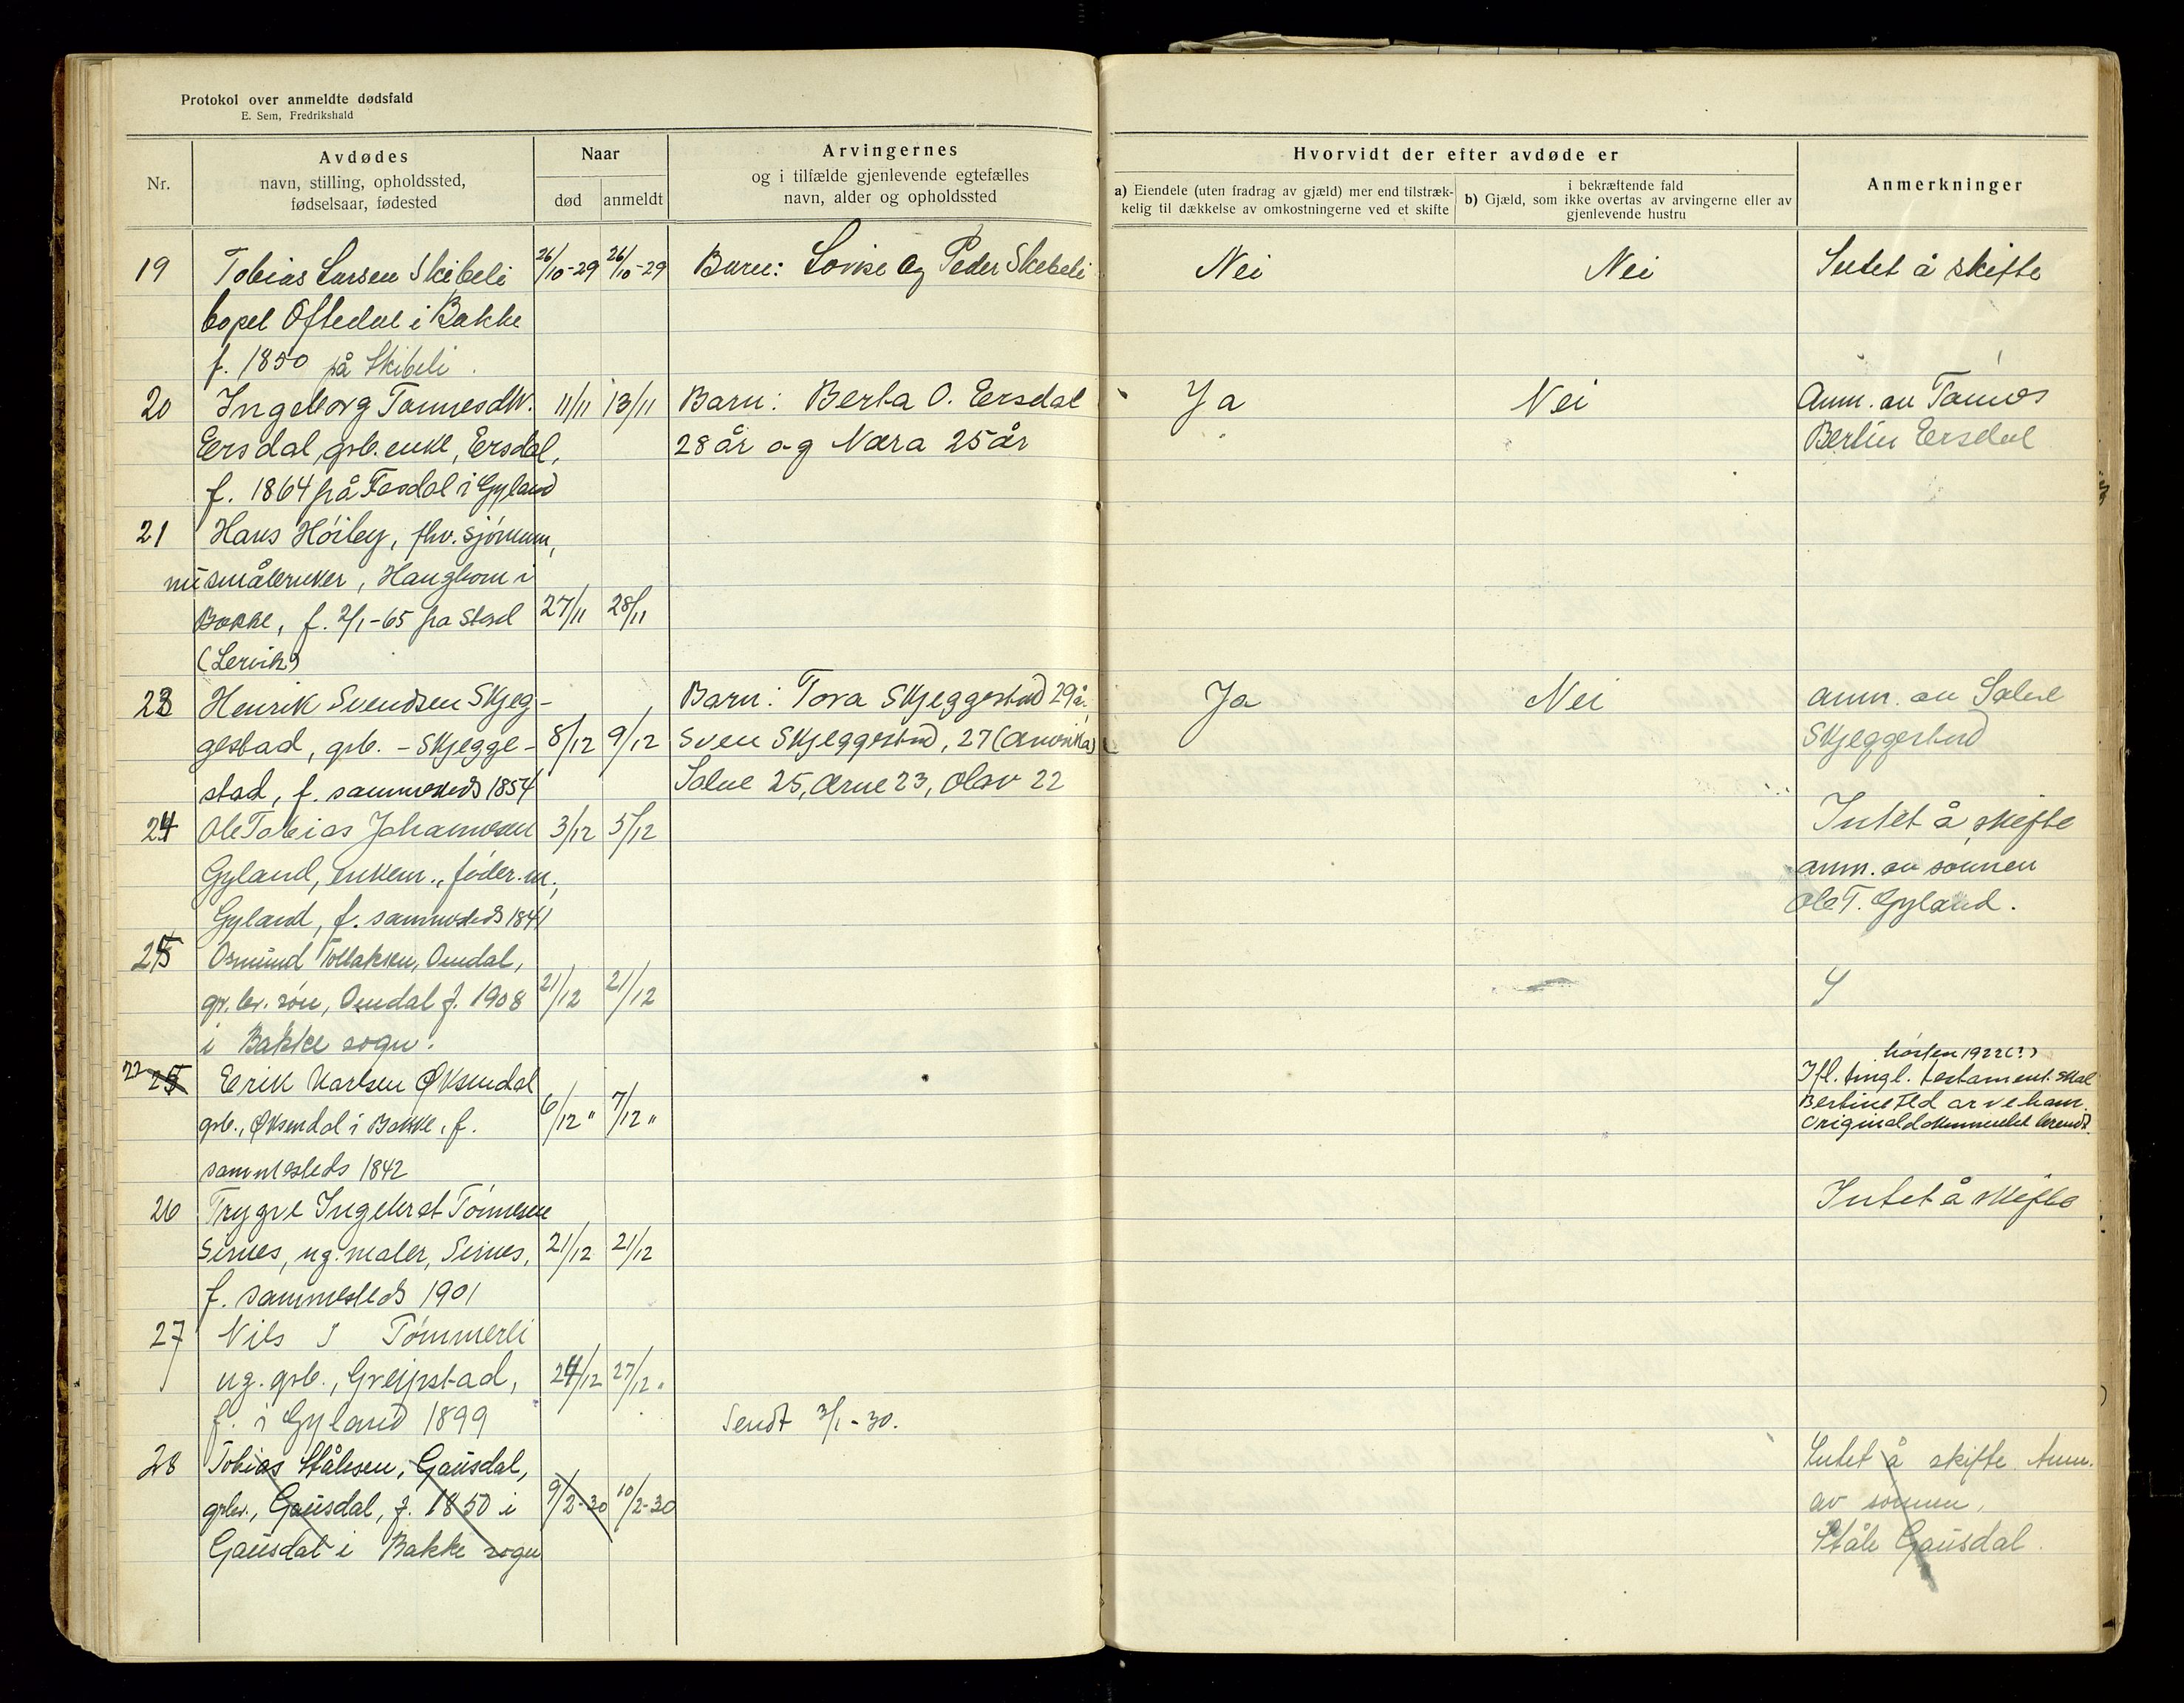 Protokol over anmeldte dødsfald
E. Sem, Fredrikshald
Nr.
Avdødes
navn, stilling, opholdssted,
fødselsaar, fødested
Naar
død
anmeldt
Arvingernes
og i tilfælde gjenlevende egtefælles
navn, alder og opholdssted
Hvorvidt der efter avdøde er
a) Eiendele (uten fradrag av gjæld) mer end tilstræk-
kelig til dækkelse av omkostningerne ved et skifte
i bekræftende fald
b) Gjæld, som ikke overtas av arvingerne eller av
gjenlevende hustru
Anmerkninger
19 Tobias Larsen Skibeli 26/10-29 26/10-29 Barn: Lovise og Peder Skebeli Nei Nei Intet å skifte
bopel Oftedal i Bakke
f. 1850 på Skibeli.
20 Ingeborg Tønnesdtr. 11/11 13/11 Barn: Berta O. Eersdal Ja Nei Anm. av Tønnes
Eersdal, grb. enke, Eersdal, 28 år og Nära 25 år Bertin Eersdal
f. 1864 på Fasdal i Gyland
21 Hans Höiley, fhv. sjömann,
nu småbruker, Haughom i
Bakke, f. 2/1-65 fra Stord 27/11 28/11
(Lervik)
23 Henrik Svendsen Skjeg- Barn: Tora Skjeggestad 29 år Ja Nei anm. av Salve
gestad, grb. - Skjegge- 8/12 9/12 Sven Skjeggestad, 27 (Amerika) Skjeggestad
stad, f. sammesteds 1854 Salve 25, Arne 23, Olav 22
24 Ole Tobias Johannesen 3/12 5/12 Intet å skifte
Gyland, enkem., föder.m., anm. av sönnen
Gyland, f. sammesteds 1841 Ole T. Gyland.
25 Osmund Tollaksen, Omdal,
gr. br. sön, Omdal f. 1908 21/12 21/12
i Bakke sogn.
22 25 Eerik Karlsen Øksendal hösten 1922(?)
grb., Øksendal i Bakke, f. 6/12 " 7/12 " Ifl. tingl. testament. skal
sammesteds 1842 Bertine Fed arve ham.
Originaldokumentet brendt.
26 Trygve Ingebret Tönnesen Intet å skifte
Sirnes, ug. maler, Sirnes, 21/12 21/12
f. sammesteds 1901
27 Nils J Tömmerli
ug. grb., Greipstad, 24/12 27/12 "
f. i Gyland 1899 Sendt 3/1-30.
28 Tobias Stålesen, Gausdal, Intet å skifte Anm.
grbr., Gausdal, f. 1850 i 9/2-30 10/2-30 av sønnen,
Gausdal i Bakke sogn Ståle Gausdal.